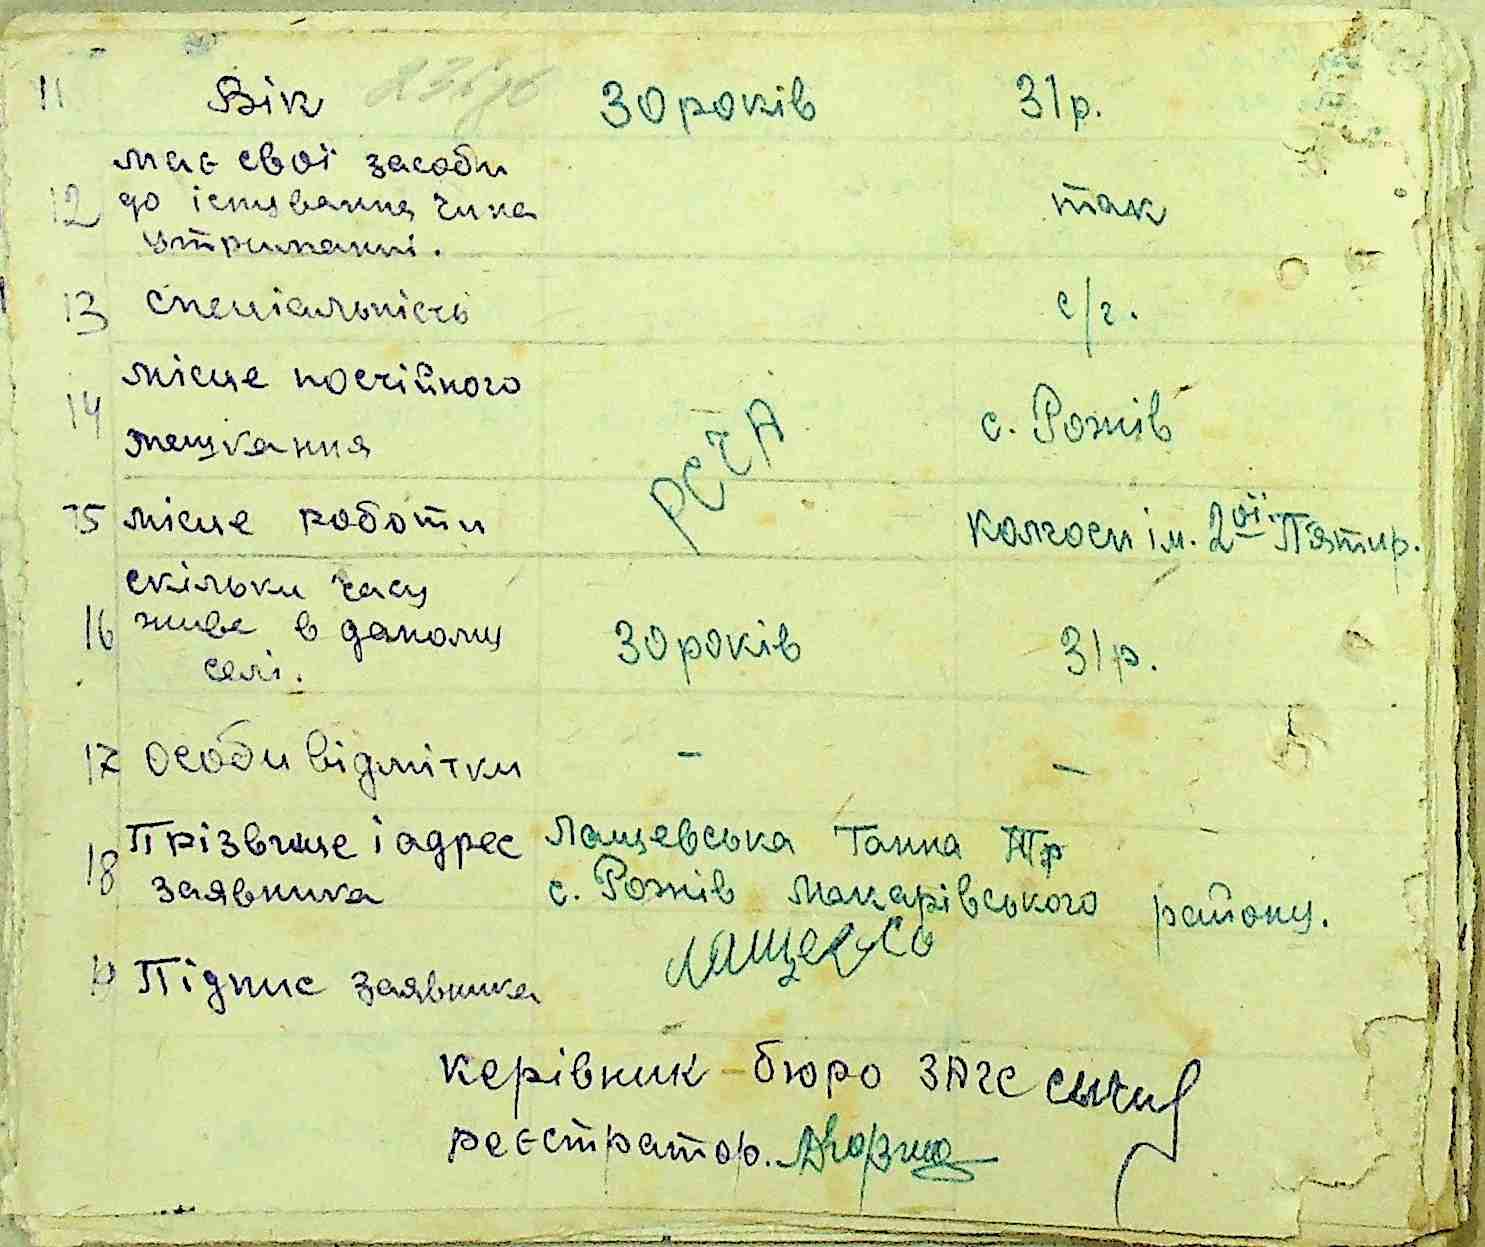 11 Вік 30 років 31 р.
має свої засоби
12 до існування чи на так
утриманні.
13 Спеціальність с/г.
місце постійного
14 с. Рожів
мешкання
РСЧА
15 місце роботи Колгосп ім. 2ої П'ятир.
скільки часу
16 живе в даному 30 років 31 р.
селі.
17 Особи відмітки – –
18 Прізвище і адрес Лащевська Ганна
заявника с. Рожів Макарівського району.
19 Підпис заявника
керівник бюро ЗАГС
реєстратор.